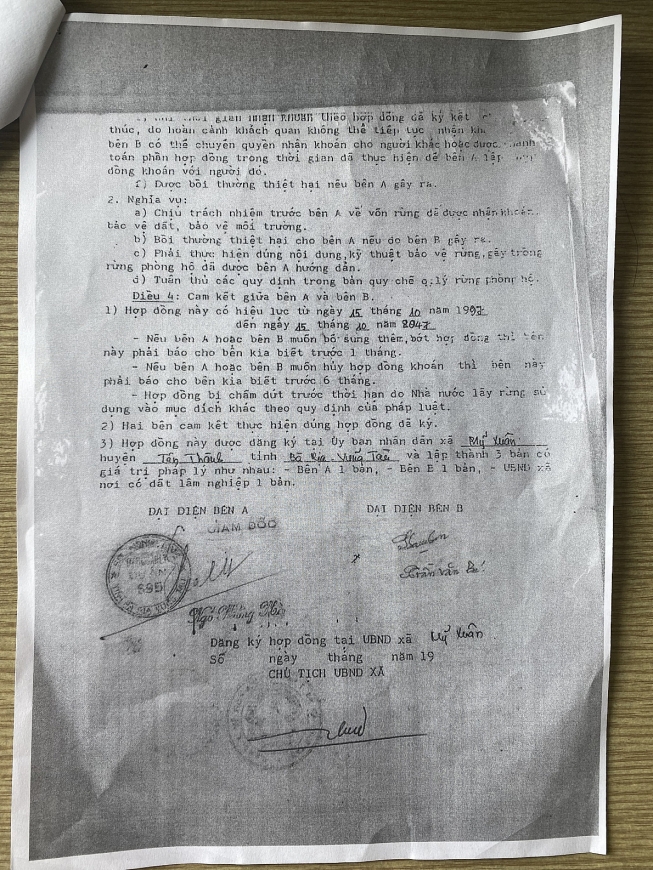 gian nhận khoán theo hợp đồng đã ký kết
thúc, do hoàn cảnh khách quan không thể tiếp tục nhận
bên B có thể chuyển quyền nhận khoán cho người khác hoặc được
toán phần hợp đồng trong thời gian đã thực hiện để bên A lập
đồng khoán với người đó.
f) Được bồi thường thiệt hại nếu bên A gây ra.
2. Nghĩa vụ:
a) Chịu trách nhiệm trước bên A về vốn rừng đã được nhận khoán,
bảo vệ đất, bảo vệ môi trường.
b) Bồi thường thiệt hại cho bên A nếu do bên B gây ra.
c) Phải thực hiện đúng nội dung, kỹ thuật bảo vệ rừng, gây trồng
rừng phòng hộ đã được bên A hướng dẫn.
d) Tuân thủ các quy định trong bản quy chế q.lý rừng phòng hộ.
Điều 4: Cam kết giữa bên A và bên B.
1) Hợp đồng này có hiệu lực từ ngày 15 tháng 10 năm 1997
đến ngày 15 tháng 10 năm 2047
- Nếu bên A hoặc bên B muốn bổ sung thêm, bớt hợp đồng thì bên
này phải báo cho bên kia biết trước 1 tháng.
- Nếu bên A hoặc bên B muốn hủy hợp đồng khoán thì bên này
phải báo cho bên kia biết trước 6 tháng.
- Hợp đồng bị chấm dứt trước thời hạn do Nhà nước lấy rừng sử
dụng vào mục đích khác theo quy định của pháp luật.
2) Hai bên cam kết thực hiện đúng hợp đồng đã ký.
3) Hợp đồng này được đăng ký tại Ủy ban nhân dân xã Mỹ Xuân
huyện Tân Thành tỉnh Bà Rịa - Vũng Tàu và lập thành 3 bản có
giá trị pháp lý như nhau: - Bên A 1 bản, - Bên B 1 bản, - UBND xã
nơi có đất lâm nghiệp 1 bản.
ĐẠI DIỆN BÊN A ĐẠI DIỆN BÊN B
GIÁM ĐỐC
Trần Văn
Ngô
Đăng ký hợp đồng tại UBND xã Mỹ Xuân
Số ngày tháng năm 19
CHỦ TỊCH UBND XÃ